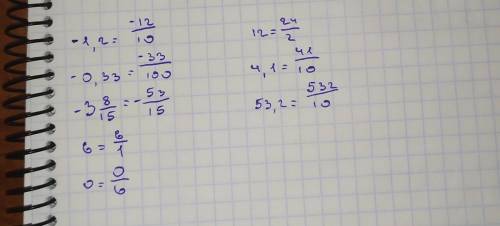 -1,2 = -12/10
-0,33 = -33/100
-3 8/15 = -53/15
6 = 6/1
0 = 0/6
12 = 24/2
4,1 = 41/10
53,2 = 532/10